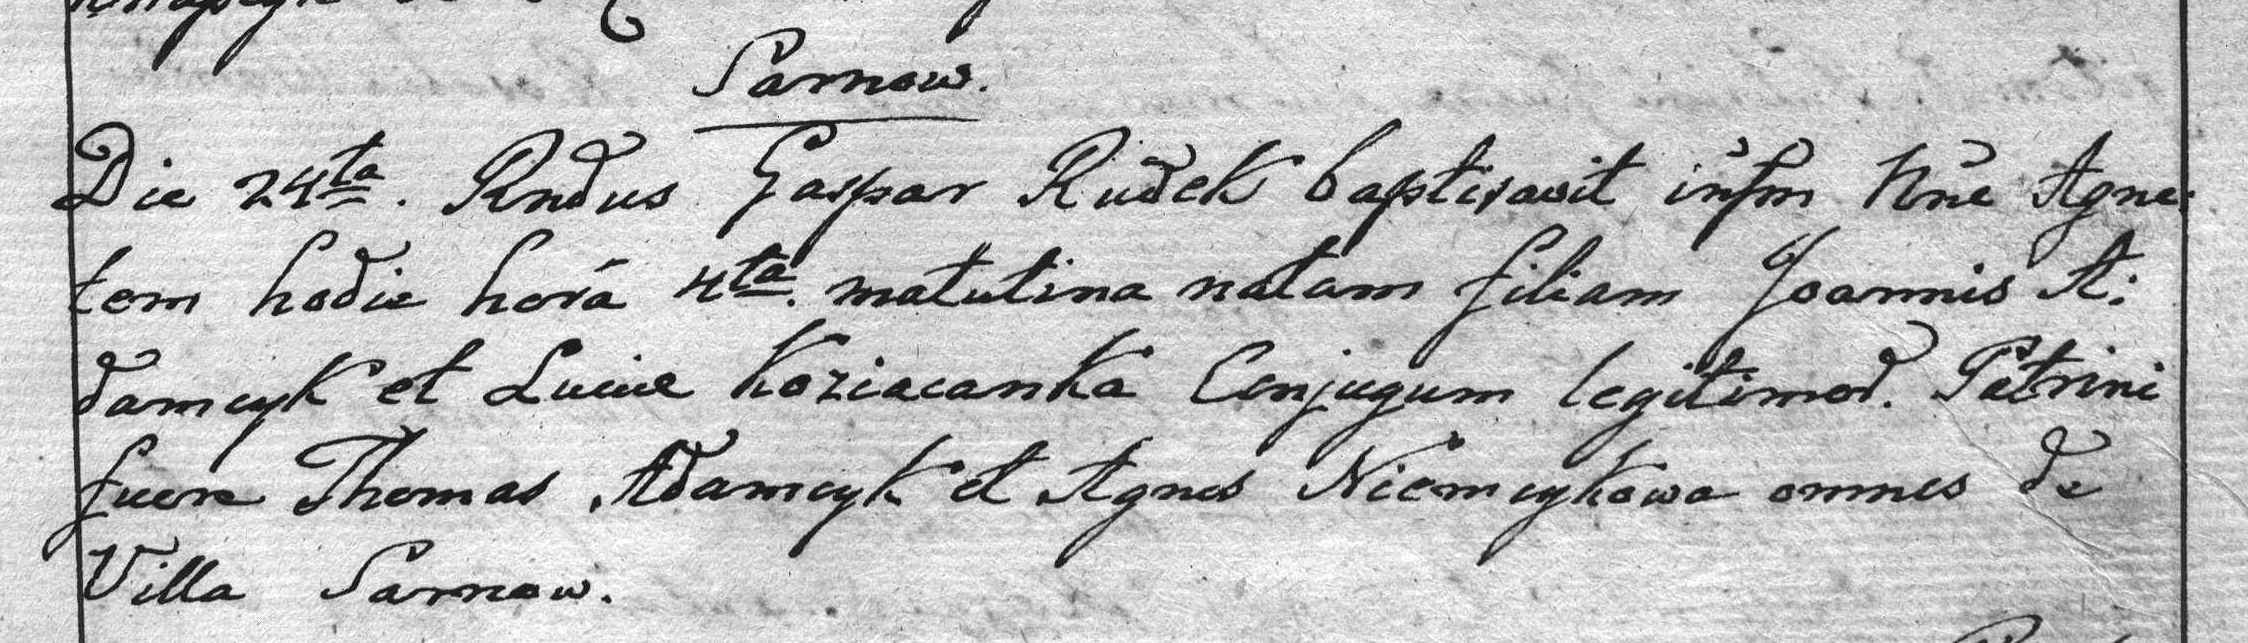 Sarnow.
Die 24ta. Rndus Gaspar Rudek baptisavit infm Nne Agne:
tem hodie horá 4ta. matutina natam filiam Joannis A:
damcyk et Luciæ Koziacanka Conjugum legitimor. Patrini
fuere Thomas Adamcyk et Agnes Niemcykowa omnes de
Villa Sarnow.